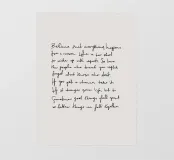 Believe that everything happens
for a reason. Life is too short
to wake up with regrets. So love
the people who treat you right
forget about those who don't
If you get a chance take it
If it changes your life let it
Sometimes good things fall apart
so better things can fall together